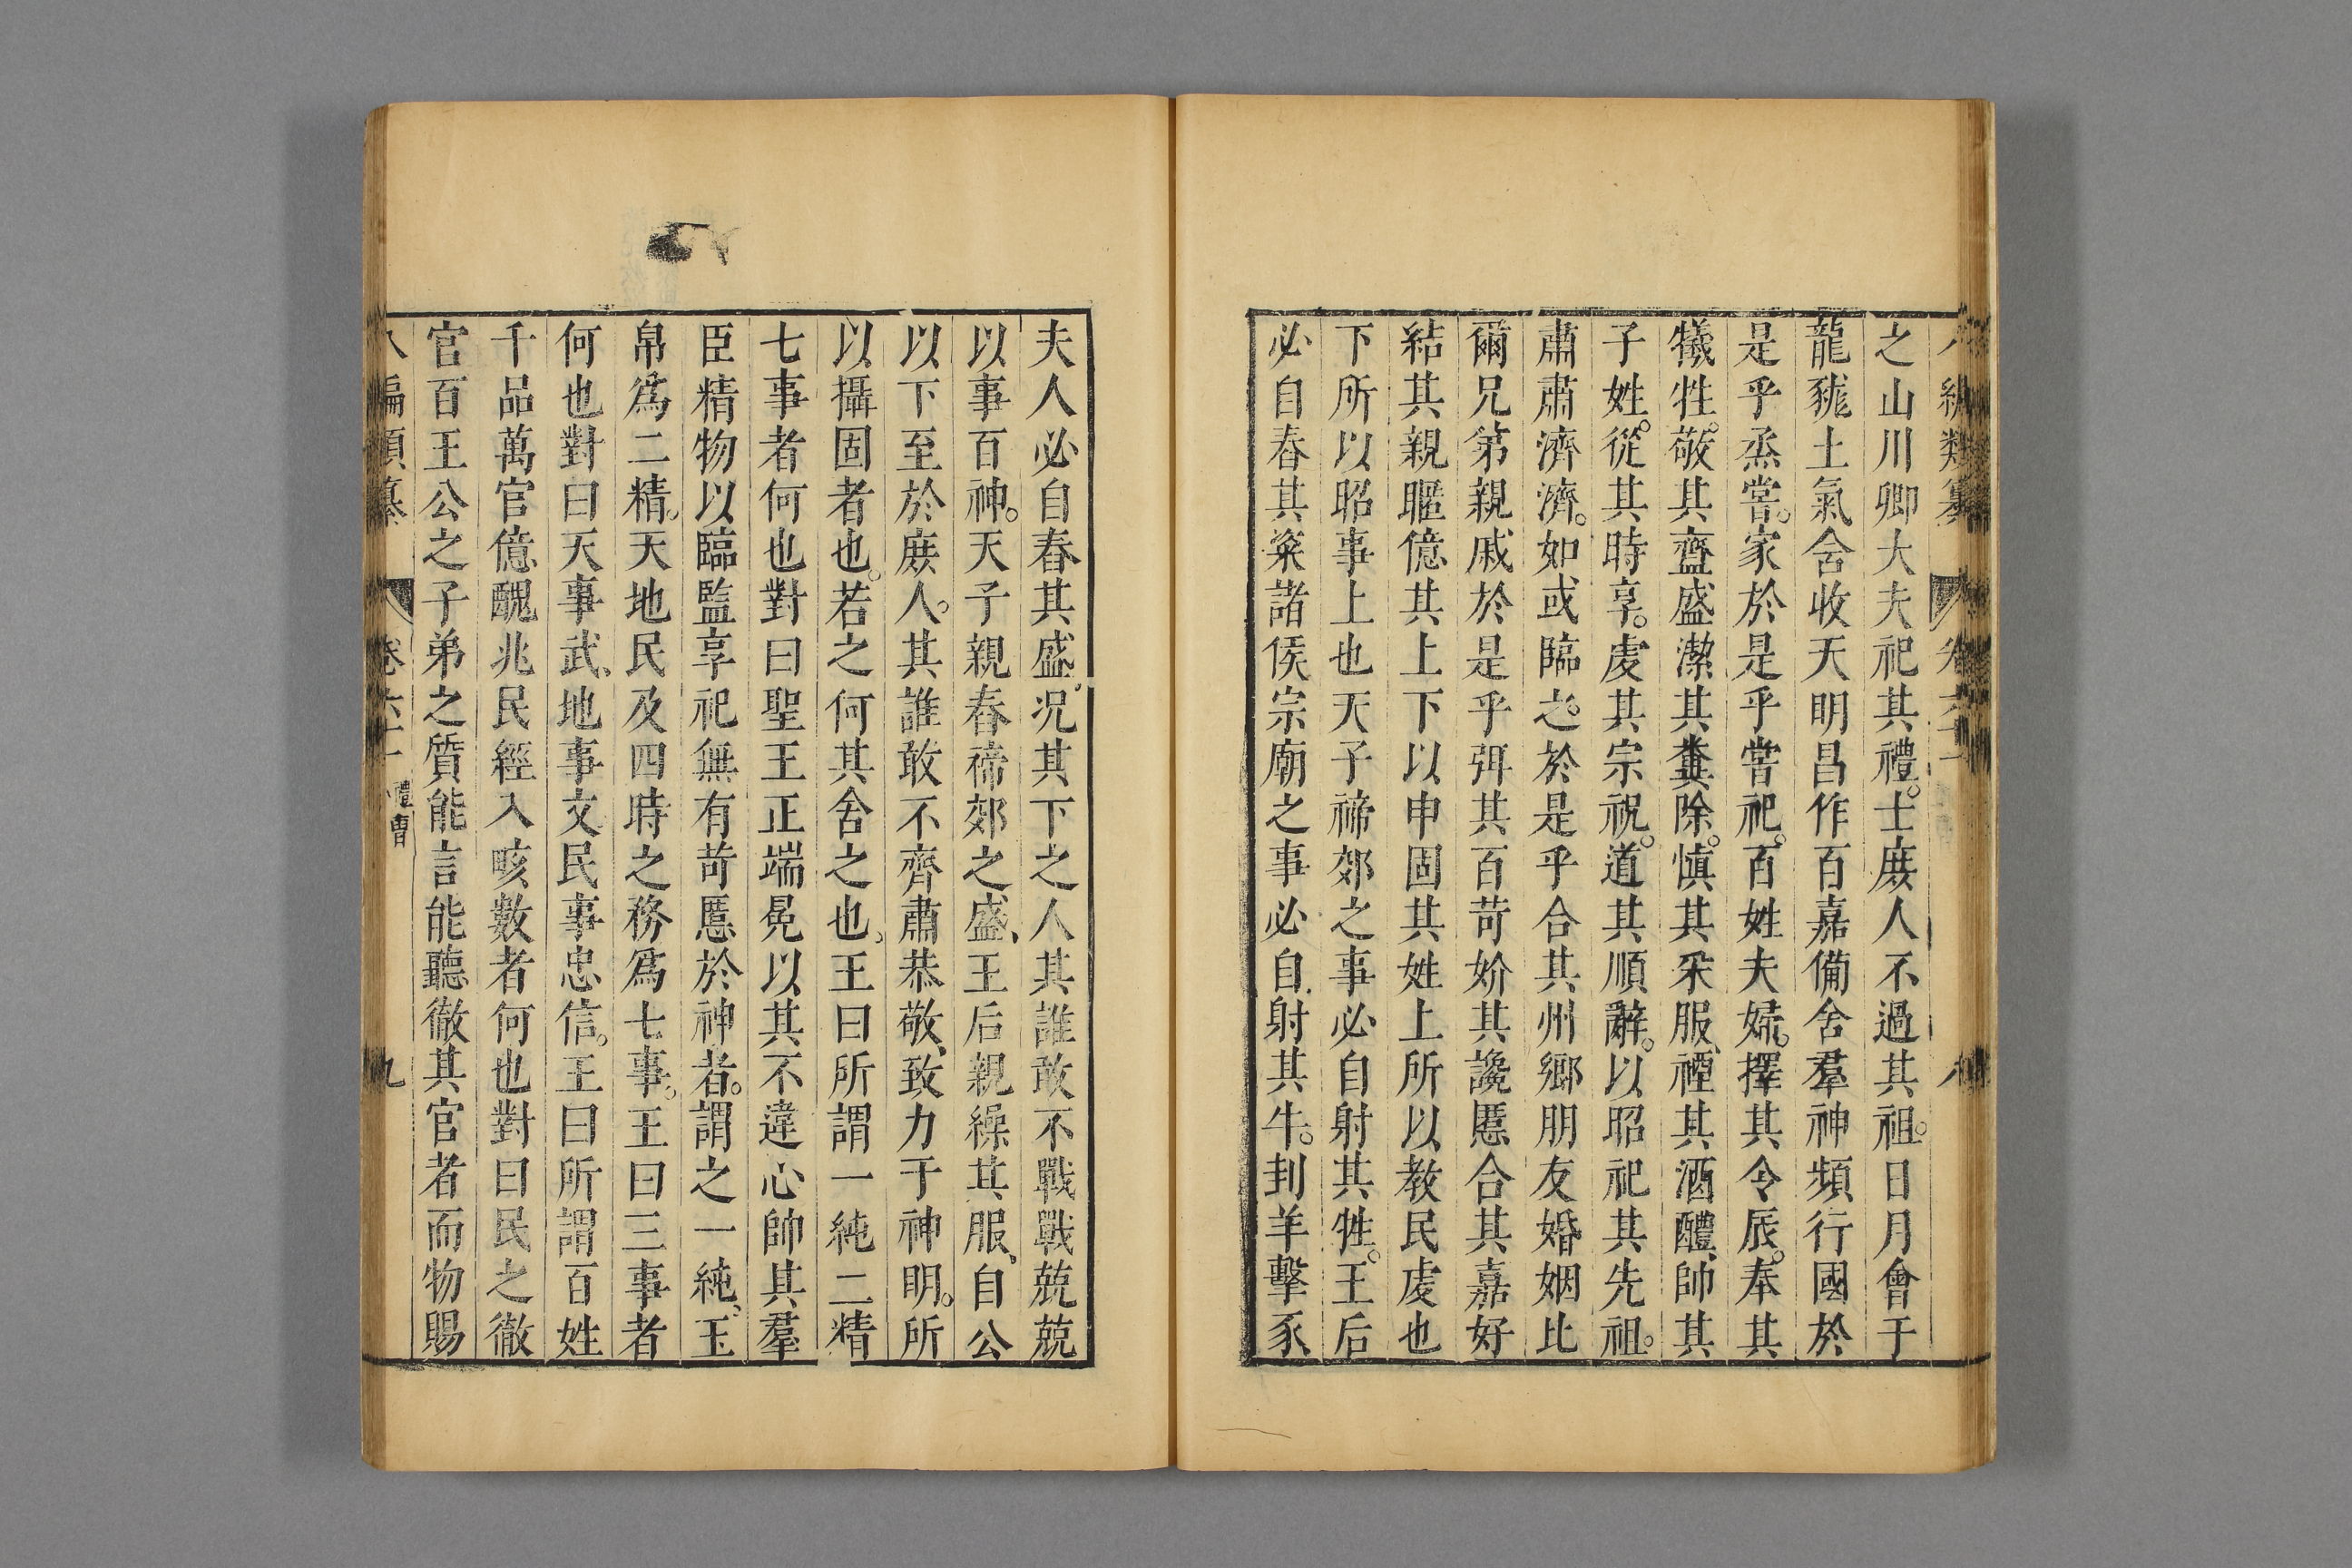 之山川卿大夫祀其禮。士庶人不過其祖。日月會于
龍豵土氣含收天明昌作百嘉備舍羣神頻行國於
是乎烝嘗。家於是乎嘗祀。百姓夫婦。擇其令辰。奉其
犧牲。敬其齍盛潔其糞除。慎其采服、禋其酒醴、帥其
子姓。從其時享。虔其宗祝。道其順辭。以昭祀其先祖。
肅肅濟濟。如或臨之。於是乎合其州鄉朋友婚姻比
爾兄弟親戚於是乎弭其百苛妎其讒慝合其嘉好
結其親暱億其上下以申固其姓上所以教民虔也
下所以昭事上也天子禘郊之事必自射其牲。王后
必自舂其粢諸侯宗廟之事必自射其牛。刲羊擊豕
夫人必自舂其盛。况其下之人其誰敢不戰戰兢兢
以事百神。天子親舂禘郊之盛、王后親繰其服、自公
以下至於庶人。其誰敢不齊肅恭敬、致力于神明。所
以攝固者也。若之何其舍之也、王曰所謂一純二精
七事者何也對曰聖王正端冕以其不違心帥其羣
臣精物以臨監享祀無有苛慝於神者。謂之一純、玉
帛爲二精。天地民及四時之務爲七事。王曰三事者
何也對曰天事武、地事文民事忠信。王曰所謂百姓
千品萬官億醜兆民經入畡數者何也對曰民之徹
官百王公之子弟之質能言能聽徹其官者而物賜
編類纂 卷六十 禮曹 九